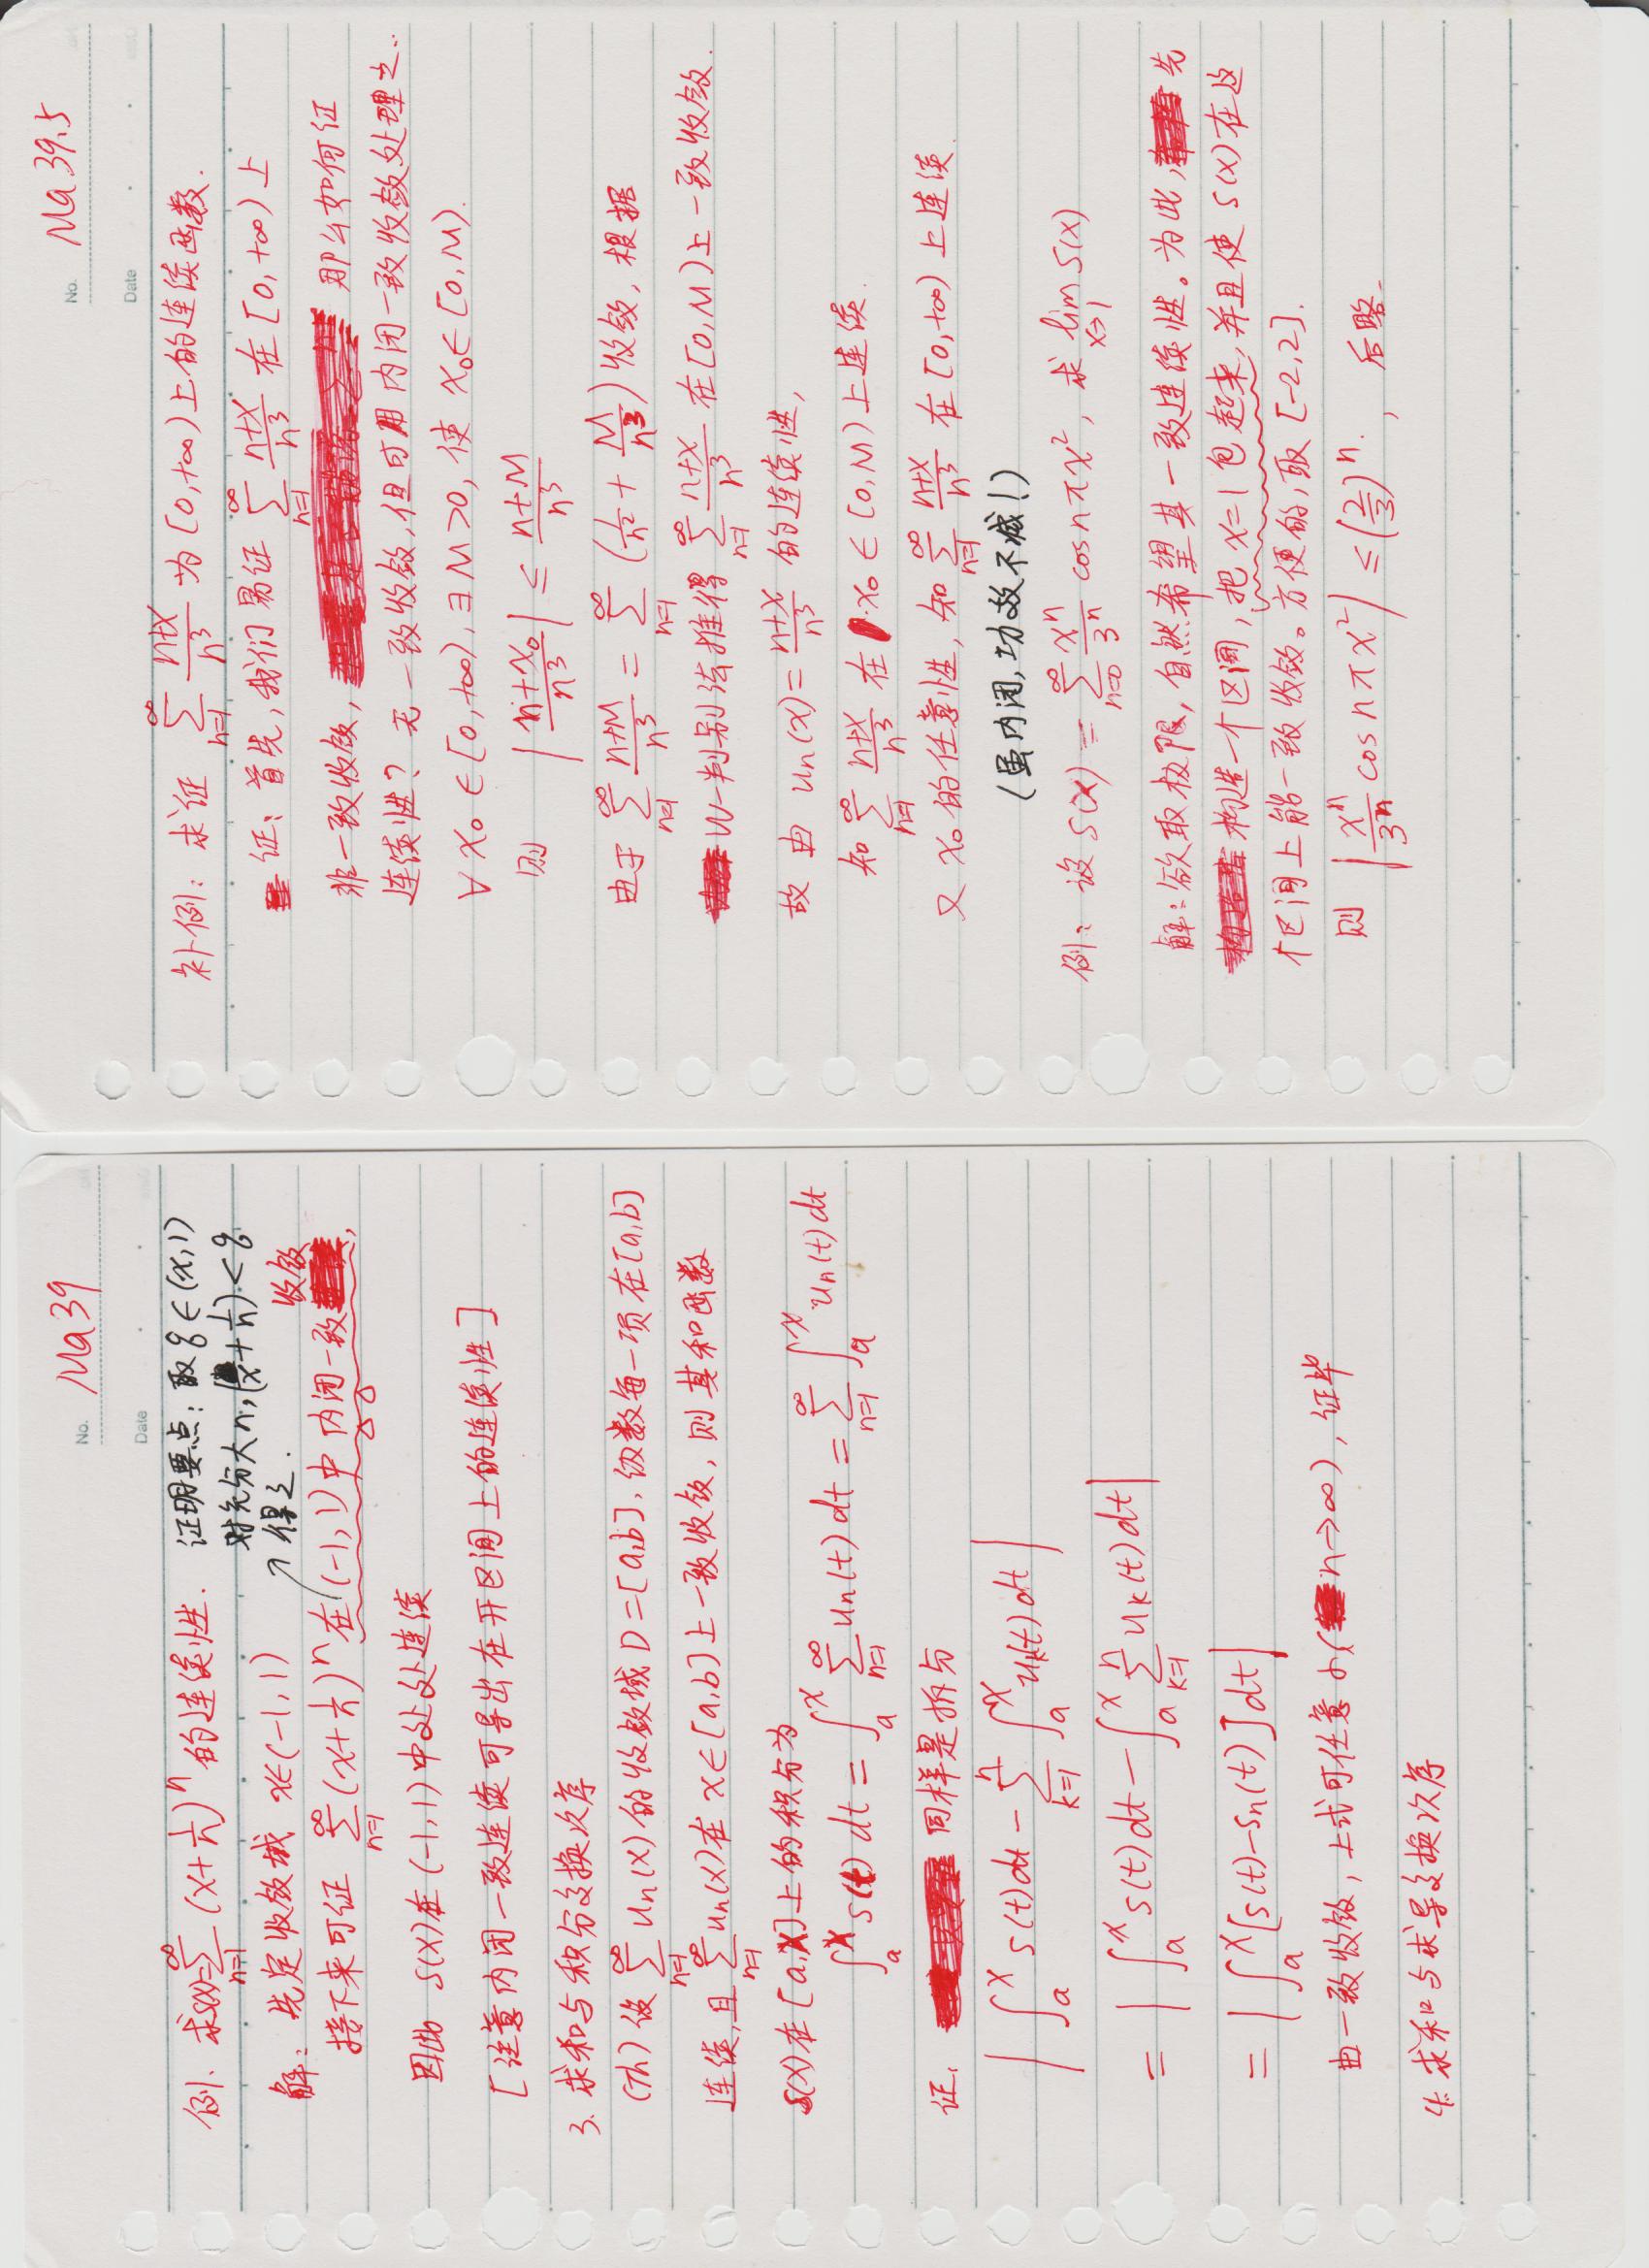 No. Ma 39
Date
例. 求S(x)=∑_{n=1}^{∞} (x+1/n)^n 的连续性.
证明要点: 取 q∈(x,1)
对充分大n, (x+1/n)<q
得之.
解: 先定收敛域 x∈(-1,1)
收敛
接下来可证 ∑_{n=1}^{∞} (x+1/n)^n 在(-1,1)中内闭一致,
因此 S(x)在(-1,1)中处处连续
[注意内闭一致连续可导出在开区间上的连续性]
3. 求和与积分交换次序
(Th) 设 ∑_{n=1}^{∞} un(x) 的收敛域 D=[a,b], 级数每一项在[a,b]
连续, 且 ∑_{n=1}^{∞} un(x) 在 x∈[a,b]上一致收敛, 则其和函数
S(x)在[a,x]上的积分为
∫_a^x s(t) dt = ∫_a^x ∑_{n=1}^{∞} un(t) dt = ∑_{n=1}^{∞} ∫_a^x un(t) dt
证. 同样是拆分
| ∫_a^x s(t)dt - ∑_{k=1}^{n} ∫_a^x uk(t) dt |
= | ∫_a^x s(t)dt - ∫_a^x ∑_{k=1}^{n} uk(t)dt |
= | ∫_a^x [s(t)-sn(t)]dt |
由一致收敛, 上式可任意小( n→∞), 证毕
4. 求和与求导交换次序
No. Ma 39.5
Date
补例: 求证 ∑_{n=1}^{∞} (n+x)/n³ 为[0,+∞)上的连续函数.
证: 首先, 我们易证 ∑_{n=1}^{∞} (n+x)/n³ 在[0,+∞)上
非一致收敛, 那么如何证
连续性? 无一致收敛, 但可用内闭一致收敛处理之..
∀ x₀∈[0,+∞), ∃M>0, 使 x₀∈[0,M).
则 |(n+x₀)/n³| ≤ (n+M)/n³
由于 ∑_{n=1}^{∞} (n+M)/n³ = ∑_{n=1}^{∞} (1/n² + M/n³) 收敛, 根据
W-判别法推得 ∑_{n=1}^{∞} (n+x)/n³ 在[0,M)上一致收敛.
故由 un(x)=(n+x)/n³ 的连续性,
知 ∑_{n=1}^{∞} (n+x)/n³ 在 x₀∈[0,M)上连续.
又 x₀ 的任意性, 知 ∑_{n=1}^{∞} (n+x)/n³ 在[0,+∞)上连续.
(虽内闭, 功效不减!)
例: 设 S(x) = ∑_{n=0}^{∞} x^n/3^n cos nπx², 求 lim_{x→1} S(x)
解: 欲取极限, 自然希望其一致连续性。为此, 先
构造一个区间, 把 x=1 包起来, 并且使 S(x)在这
个区间上能一致收敛。方便的, 取 [-2,2].
则 |x^n/3^n cos nπx²| ≤ (2/3)^n. , 后略.